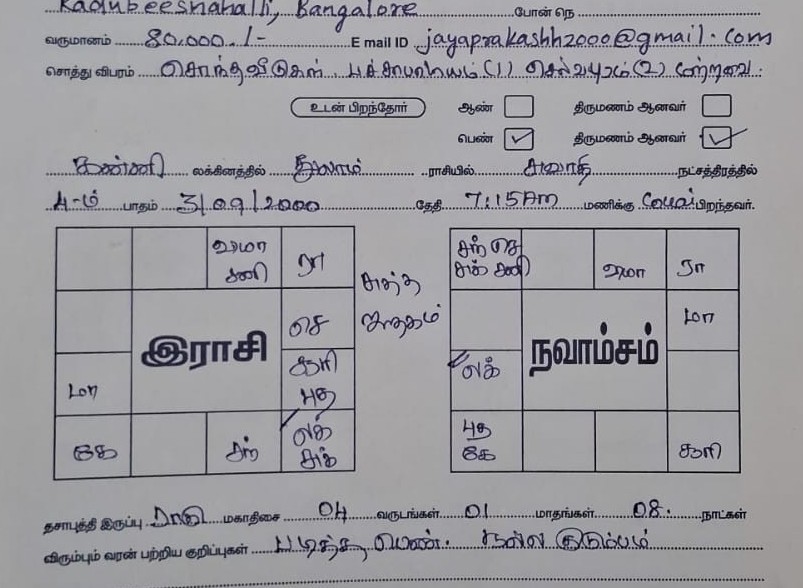 Kadubeesnahalli, Bangalore போன் நெ
வருமானம் 80,000./- E mail ID jayaprakashh2000@gmail.com
சொத்து விபரம் சொந்த வீடுகள், பச்சாபாளையம் (1) செல்வபுரம் (2) மற்றவை.
உடன் பிறந்தோர் ஆண் திருமணம் ஆனவர்
பெண் ✓ திருமணம் ஆனவர் ✓
கன்னி லக்கினத்தில் துலாம் ராசியில் சுவாதி நட்சத்திரத்தில்
4-ம் பாதம் 3/09/2000 தேதி 7:15AM மணிக்கு கோவை பிறந்தவர்.
குரு சனி ரா
செ
சூரி புத
மா
கே சந் லக் சுக்
இராசி
சுத்த ஜாதகம்
சந் செ சுக் சனி குரு ரா
மா
லக்
புத கே சூரி
நவாம்சம்
தசாபுத்தி இருப்பு ராகு மகாதிசை 04 வருடங்கள் 01 மாதங்கள் 08 நாட்கள்
விரும்பும் வரன் பற்றிய குறிப்புகள் படித்த பெண். நல்ல குடும்பம்